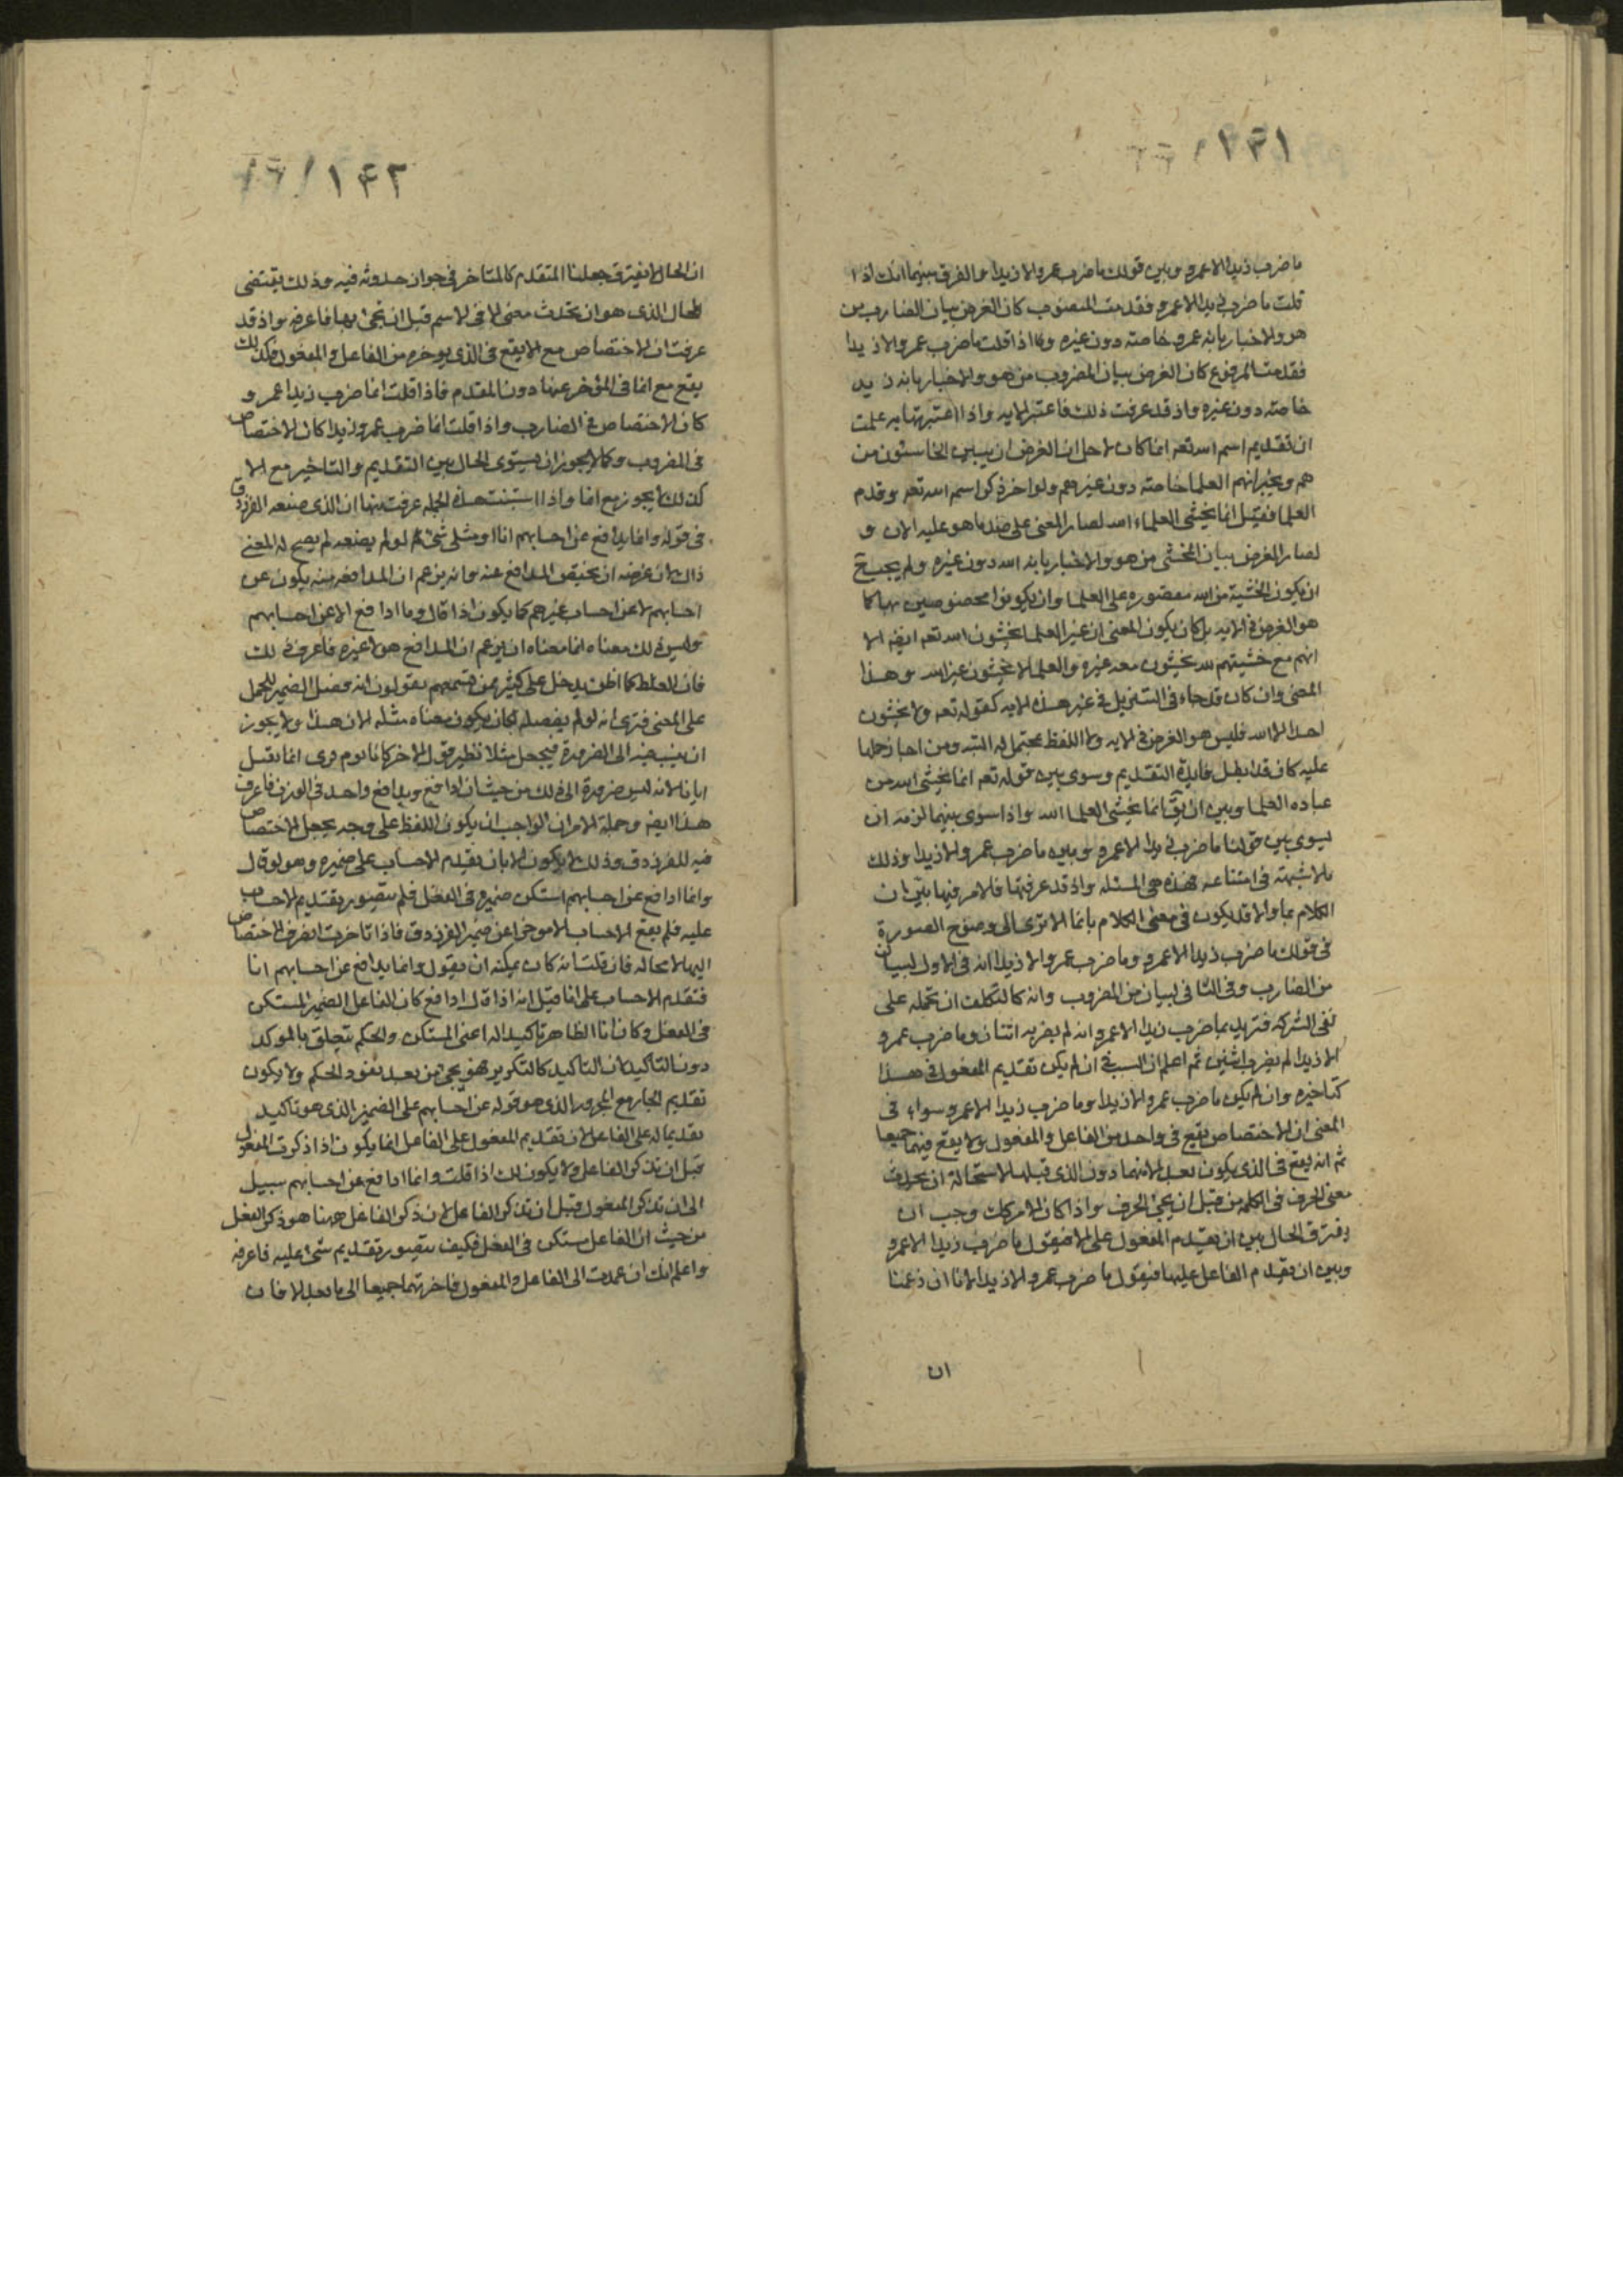 ١٣١
ما ضرب زيدا الا عمرو وبين قولك ما ضرب عمرو الا زيدا والفرق بينهما انك اذا
قلت ما ضرب زيدا الا عمرو فقدمت المنصوب كان الغرض بيان الضارب من
هو والاخبار بانه عمرو خاصته دون غيره وكا اذا قلت ما ضرب عمرو الا زيدا
فقدمت المرفوع كان الغرض بيان المضروب من هو والاخبار بانه زيد
خاصته دون غيره واذ قد عرفت ذلك فاعتبر الايه واذا اعتبرتها به علمت
ان تقديم اسم الله تعه انما كان لاجل ان الغرض ان يبين الخاشون من
هم ويخبر انهم العلما خاصته دون غيرهم ولو اخر ذكر اسم الله تعه وقدم
العلما فقيل انما يخشى العلماء الله لصار المعنى على ضد ما هو عليه الان و
لصار الغرض بيان المخشى من هو والاخبار بانه الله دون غيره ولم يجب ح
ان يكون الخشية من الله مقصوره على العلما وان يكونوا مخصوصين بها كا
هو الغرض فى الايه بل كان يكون المعنى ان غير العلما يخشون الله تعه ايضه الا
انهم مع خشيتهم لله يخشون معه غيره والعلما لا يخشون غير الله وهذا
المعنى وان كان قد جاء فى التنزيل فى غير هذه الايه كقوله تعه ولا يخشون
احدا الا الله فليس هو الغرض فى الايه ولا اللفظ بمحتمل له البته ومن اجاز حملها
عليه كان قد ابطل فايدة التقديم وسوى بين قوله تعه انما يخشى الله من
عباده العلما وبين ان يقى انما يخشى العلما الله واذا سوى بينهما لزمه ان
يسوى بين قولنا ما ضرب زيدا الا عمرو وبين ما ضرب عمرو الا زيدا وذلك
ملا شبهته فى امتناعه فهذه هى المسئله واذ قد عرفتها فالامر فيها بين ان
الكلام بما والا قد يكون فى معنى الكلام بانما الا ترى الى وضوح الصورة
فى قولك ما ضرب زيدا الا عمرو وما ضرب عمرو الا زيدا انه فى الاول لبيان
من الضارب وفى الثانى لبيان من المضروب وانه كا لتكلف ان تحمله على
نفى الشركه فتريد بما ضرب زيدا الا عمرو انه لم يضربه اثنان وما ضرب عمرو
الا زيدا لم يضرب اثنين ثم اعلم ان السبب فى ان لم يكن تقديم المفعول فى هذا
كتاخيره وان لم يكن ما ضرب عمرو الا زيدا وما ضرب زيدا الا عمرو سواء فى
المعنى ان الاختصاص يقع فى واحد من الفاعل والمفعول ولا يقع فيهما جميعا
ثم انه يقع فى الذى يكون بعد الا منهما دون الذى قبلها لاستحالة ان يحدث
معنى الحرف فى الكلمه من قبل ان يجئ الحرف واذا كان الامر كك وجب ان
يفترق الحال بين ان يقدم المفعول على الا فيقول ما ضرب زيدا الا عمرو
وبين ان يقدم الفاعل عليها فيقول ما ضرب عمرو الا زيدا لانا ان زعمنا
ان
١۴٢
ان الحال لا يفترق جعلنا المتقدم كالمتاخر فى جواز حدوثه فيه وذلك يقتضى
المحال الذى هو ان يحدث معنى الا فى الاسم قبل ان تجئ بها فاعرفه واذ قد
عرفت ان الاختصاص مع الا يقع فى الذى يوخره من الفاعل والمفعول فكذلك
يقع مع انما فى المؤخر عنها دون المقدم فاذا قلت انما ضرب زيدا عمرو
كان الاختصاص فى الضارب واذا قلت انما ضرب عمرو زيدا كان الاختصاص
فى المضروب وكا لا يجوز ان يستوى الحال بين التقديم والتاخير مع الا
كذلك لا يجوز مع انما واذا استبنت هذه الجمله عرفت منها ان الذى صنعه الفرزدق
فى قوله وانما يدافع عن احسابهم انا او مثلى شئ لو لم يصنعه لم يصح له المعنى
ذاك لان غرضه ان يخص المدافع عنه وانه يزعم ان المدافعه منه يكون عن
احسابهم لا عن احساب غيرهم كا يكون اذا قال وما ادافع الا عن احسابهم
وليس ذلك معناه انما معناه ان يزعم ان المدافع هو لا غيره فاعرف ذلك
فان الغلط كما اظن يدخل على كثير ممن تسمعهم يقولون انه فصل الضمير للحمل
على المعنى فترى انه لو لم يفصله لكان يكون معناه مثله الان هذا ولا يجوز
ان ينسب فيه الى الضرورة فيجعل مثلا نظير قول الاخر كانا يوم قرى انما نقتل
ايانا لانه ليس ضرورة الى ذلك من حيث ان ادافع ويدافع واحد فى الوزن فاعرف
هذا ايضه وجملة الامر ان الواجب ان يكون اللفظ على وجه يجعل الاختصاص
فيه للفرزدق وذلك لا يكون الا بان يقدم الاحساب على ضميره وهو لو قال
وانما ادافع عن احسابهم استكن ضميره فى الفعل فلم يتصور تقديم الاحساب
عليه فلم يقع الاحساب الا موخرا عن ضمير الفرزدق فاذا تاخرت انصرف الاختصاص
اليها لا محاله فان قلت انه كان يمكنه ان يقول وانما يدافع عن احسابهم انا
فتقدم الاحساب على انا قيل انه اذا قال ادافع كان الفاعل الضمير المستكن
فى الفعل وكان انا الظاهر تاكيدا له اعنى المستكن والحكم يتعلق بالموكد
دون التاكيد لان التاكيد كالتكرير فهو يجئ من بعد نفوذ الحكم ولا يكون
تقديم الجار مع المجرور الذى هو قوله عن احسابهم على الضمير الذى هو تاكيد
تقديما له على الفاعل لان تقديم المفعول على الفاعل انما يكون اذا ذكرت المفعول
قبل ان تذكر الفاعل ولا يكون لك اذا قلت وانما ادافع عن احسابهم سبيل
الى ان تذكر المفعول قبل ان تذكر الفاعل لان ذكر الفاعل ههنا هو ذكر الفعل
من حيث ان الفاعل مستكن فى الفعل فكيف يتصور تقديم شئ عليه فاعرفه
واعلم انك ان عمدت الى الفاعل والمفعول فاخرتهما جميعا الى ما بعد الا فان